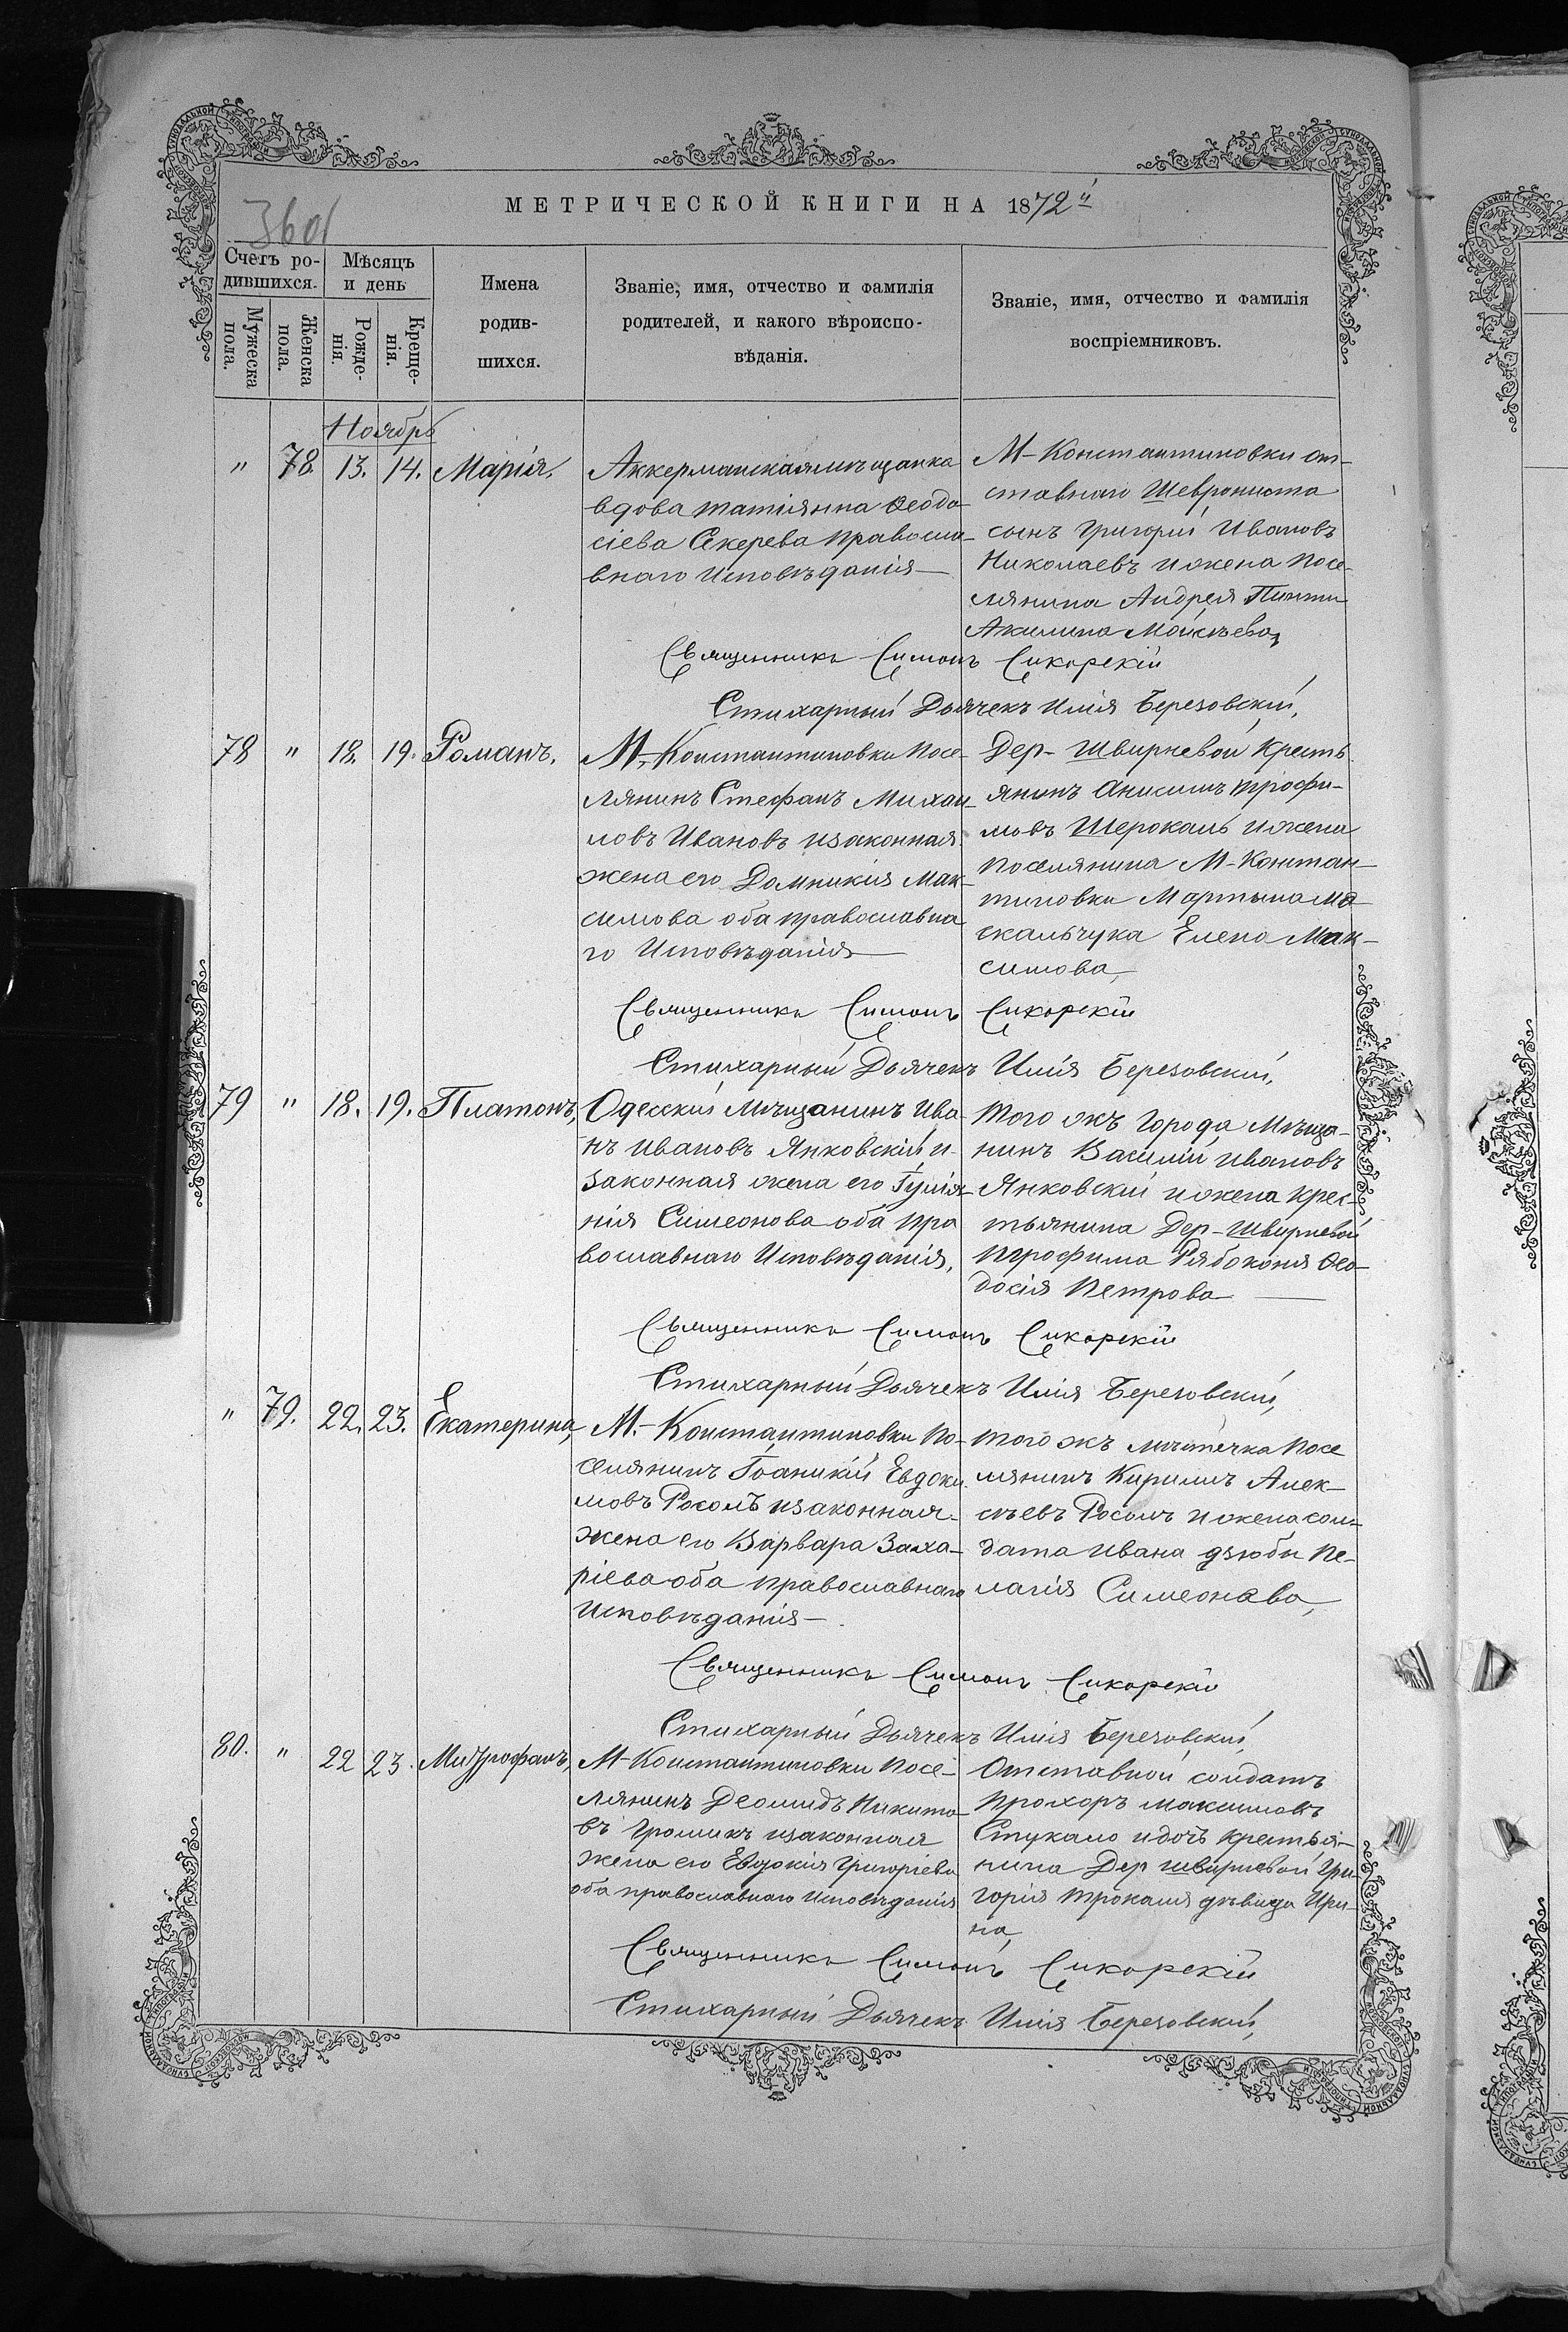 МЕТРИЧЕСКОЙ КНИГИ НА 1872й
3601
Счетъ ро-
дившихся.
Мужеска
пола.
Женска
пола.
Мѣсяцъ
и день
Рожде-
нія.
Креще-
нія.
Имена
родив-
шихся.
Званіе, имя, отчество и фамилія
родителей, и какого вѣроиспо-
вѣданія.
Званіе, имя, отчество и фамилія
воспріемниковъ.
Ноябрь
" 78. 13. 14. Марія.
Аккерманская мѣщанка
вдова татіянна Ѳеодо-
сіева Секерева Правосла-
внаго Исповѣданія
М-Константиновки от-
ставнаго Шеврониста
сынъ Григорій Ивановъ
Николаевъ и жена посе-
лянина Андрея Пинти
Акилина Моисѣева,
Священникъ Симонъ Сикорскій
Стихарный Дьячекъ Илія Березовскій,
78 " 18. 19. Романъ.
М-Константиновки Посе-
лянинъ Стефанъ Михаи-
ловъ Ивановъ и законная
жена его Домникія Мак-
симова оба православна
го Исповѣданія
Дер- Швирневой Кресть
янинъ Онисимъ трофи-
мовъ Шерокань и жена
поселянина М-Констан-
тиновки Мартына Мо
скальчука Елена Мак-
симова,
Священникъ Симонъ Сикорскій
Стихарный Дьячекъ Илія Березовскій,
79 " 18. 19. Платонъ,
Одесскій Мѣщанинъ Ива-
нъ Ивановъ Янковскій и
законная жена его Іулія-
нія Симеонова оба пра
вославнаго Исповѣданія,
Того жъ Города Мѣща-
нинъ Василій Ивановъ
Янковскій и жена крес-
тьянина Дер-Швирневой
трофима Рябоконя Ѳео-
досія Петрова
Священникъ Симонъ Сикорскій
Стихарный Дьячекъ Илія Березовскій,
" 79. 22. 23. Екатерина,
М.-Константиновки По-
селянинъ Іоаникій Евдоки
мовъ Росолъ и законная
жена его Варвара Заха-
ріева оба православнаго
Исповѣданія
того жъ мѣстечка Посе
лянинъ Кирилъ Алек-
сѣевъ Росолъ и жена сол-
дата Ивана дзюбы Пе-
лагія Симеонова,
Священникъ Симонъ Сикорскій
Стихарный Дьячекъ Илія Березовскій,
80. " 22 23. Митрофанъ,
М-Константиновки Посе-
лянинъ Деомидъ Никито-
въ Громикъ и законная
жена его Евдокія Григоріева
оба православнаго исповѣданія
Отставной солдатъ
Прохоръ Максимовъ
Стукало и дочь крестья-
нина Дер Швирневой Гри-
горія трокаля дѣвица Ири-
на,
Священникъ Симонъ Сикорскій
Стихарный Дьячекъ Илія Березовскій,